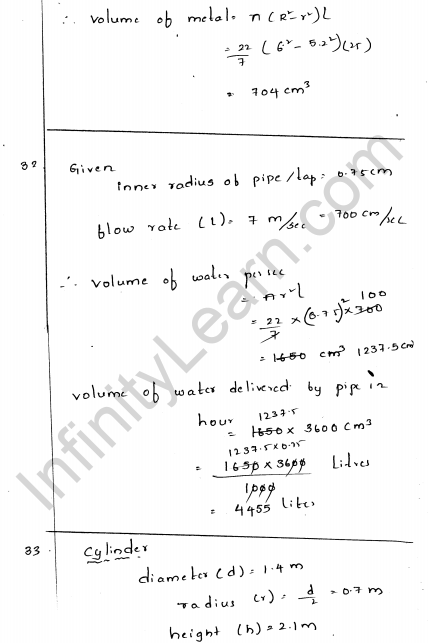 ∴ Volume of metal = π (R² - r²) l
= 22/7 (6² - 5.2²) (25)
= 704 cm³
32 Given
inner radius of pipe/tap = 0.75 cm
flow rate (l) = 7 m/sec = 700 cm/sec
∴ Volume of water per sec
= πr²l
= 22/7 × (0.75)² × 700 100
= 1650 cm³ 1237.5 cm
Volume of water delivered by pipe in
hour 1237.5
= 1650 × 3600 cm³
1237.5 × 0.75
= 1650 × 3600 / 1000 Litres
= 4455 liter
33 Cylinder
diameter (d) = 1.4 m
radius (r) = d/2 = 0.7 m
height (h) = 2.1 m
InfinityLearn.com